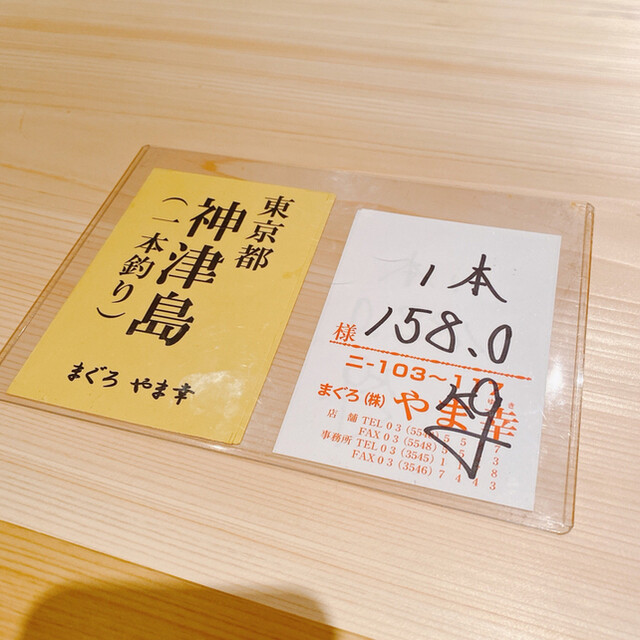 東京都
神津島
(一本釣り)
まぐろ やま幸
1本
158.0
様
ニ-103~
まぐろ(株)やま幸
店舗 TEL 03(554
FAX 03(5548)
事務所 TEL 03(3545)
FAX 03(3546)7443